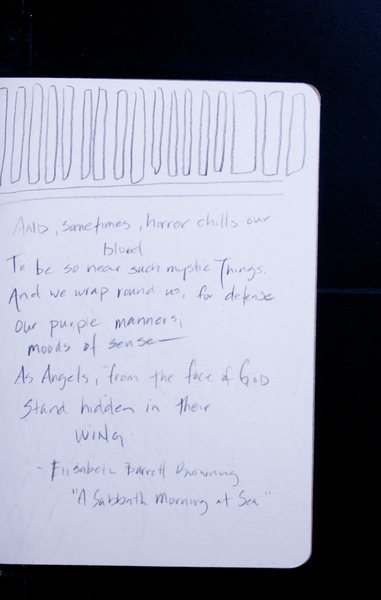 AND, sometimes, horror chills our
blood
To be so near such mystic Things.
And we wrap round us, for defense
Our purple manners,
moods of sense—
As Angels, from the face of GOD
Stand hidden in their
WING.
- Elisabeth Barrett Browning
"A Sabbath Morning at Sea"